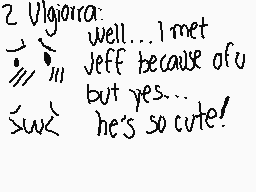 2 Vlgiorra:
well...I met
Jeff because of u
but yes...
he's so cute!